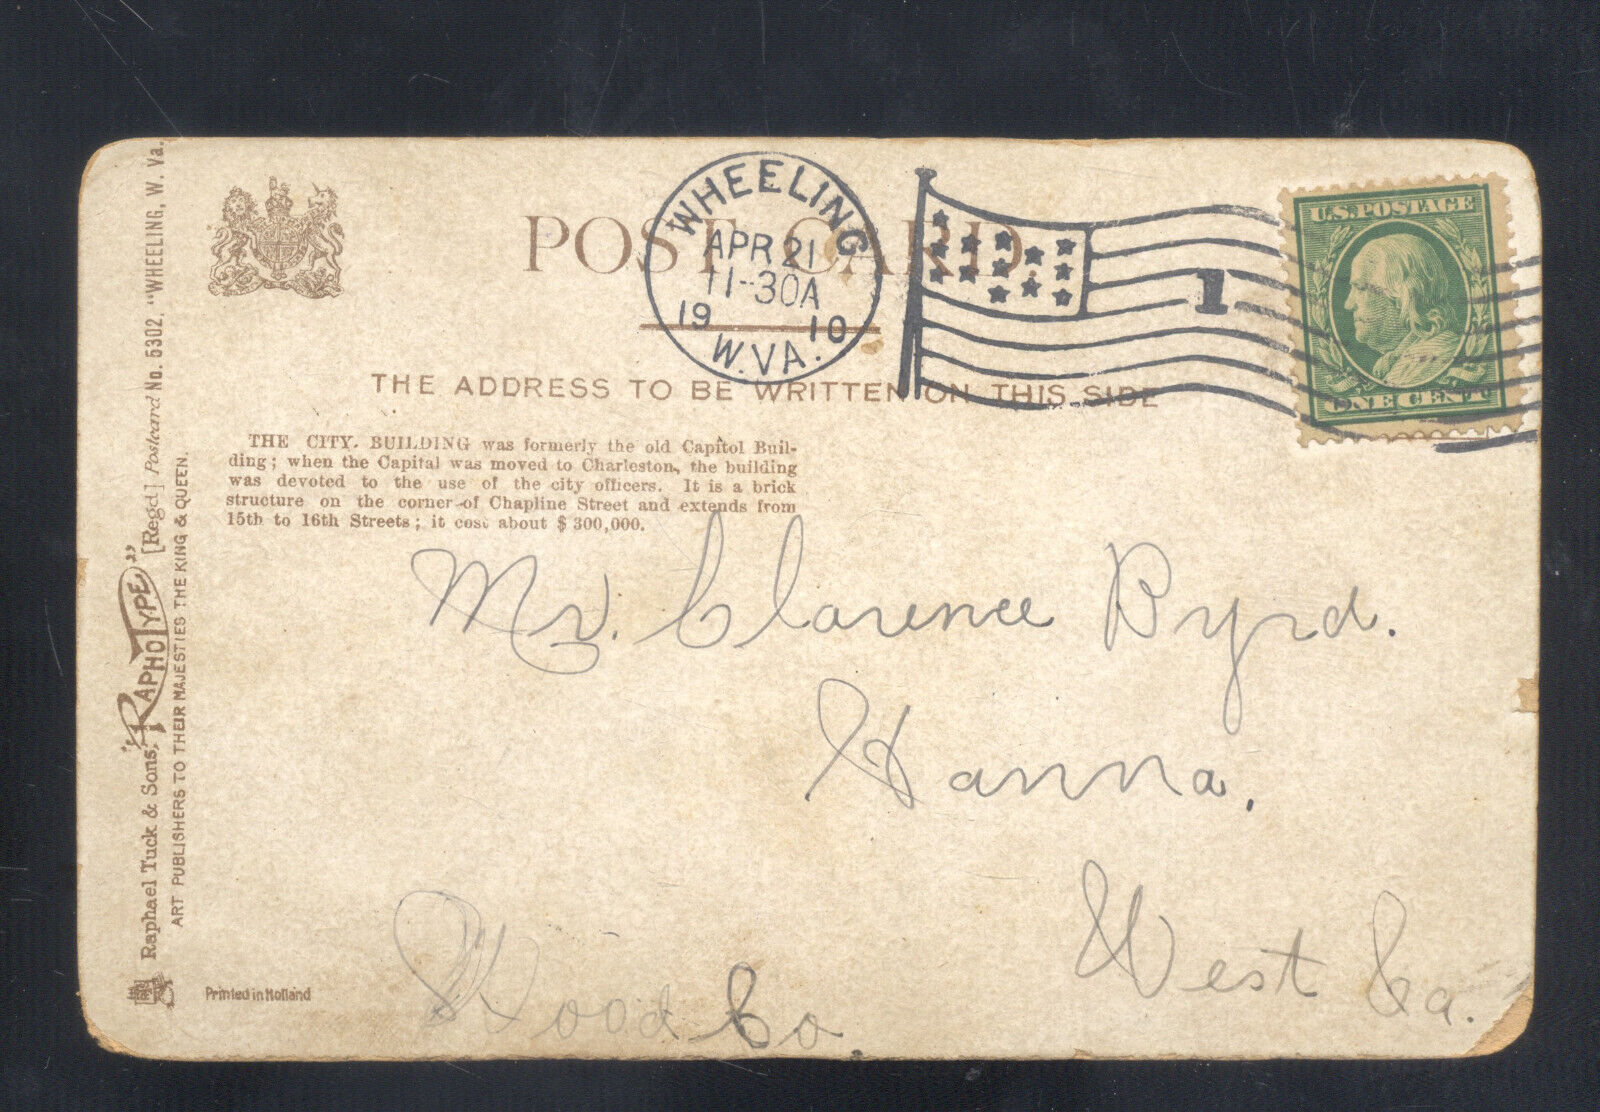 POST CARD.
THE ADDRESS TO BE WRITTEN ON THIS SIDE
WHEELING
APR 21
11-30A
19 10
W.VA.
1
U.S. POSTAGE
ONE CENT
THE CITY. BUILDING was formerly the old Capitol Buil-
ding; when the Capital was moved to Charleston, the building
was devoted to the use of the city officers. It is a brick
structure on the corner of Chapline Street and extends from
15th to 16th Streets; it cost about $ 300,000.
Mr. Clarence Byrd.
Hanna.
West Va.
Wood Co.
Raphael Tuck & Sons' "RAPHOTYPE" [Regd] Postcard No. 5302. "WHEELING, W. Va.
ART PUBLISHERS TO THEIR MAJESTIES THE KING & QUEEN.
Printed in Holland